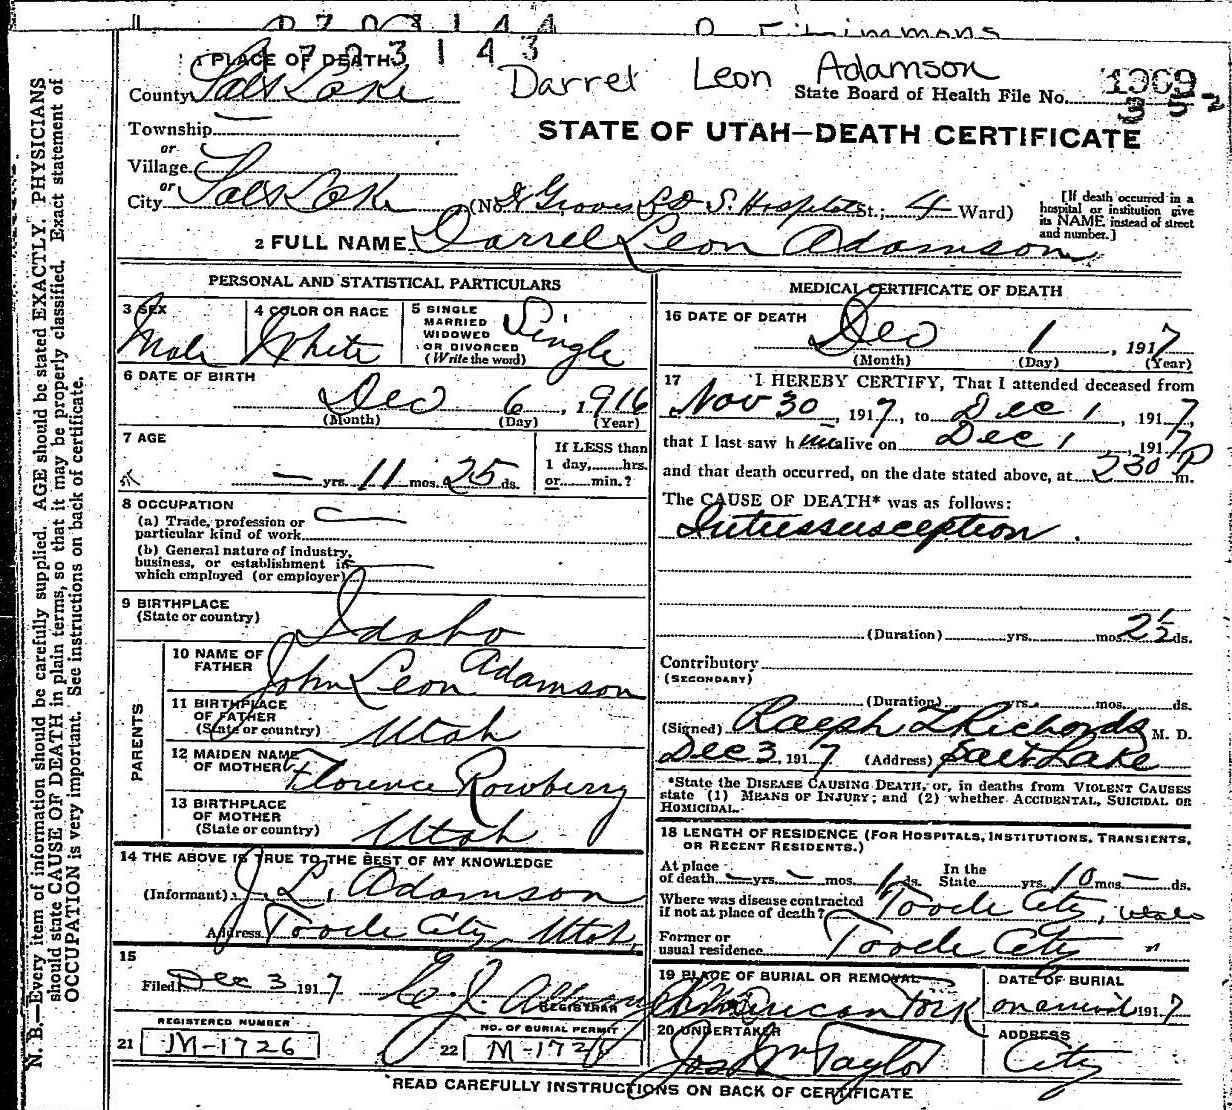 1 PLACE OF DEATH
703143
County Salt Lake
Darrel Leon Adamson
State Board of Health File No. 1969
352
Township
or
Village
or
City Salt Lake
STATE OF UTAH—DEATH CERTIFICATE
(No. Groves L D S. Hospital St.; 4 Ward)
[If death occurred in a
hospital or institution give
its NAME instead of street
and number.]
2 FULL NAME Darrel Leon Adamson
PERSONAL AND STATISTICAL PARTICULARS
3 SEX
Male
4 COLOR OR RACE
White
5 SINGLE
MARRIED
WIDOWED
OR DIVORCED
(Write the word)
Single
6 DATE OF BIRTH
Dec 6, 1916
(Month) (Day) (Year)
7 AGE
— yrs. 11 mos. 25 ds.
If LESS than
1 day, hrs.
or min.?
8 OCCUPATION
(a) Trade, profession or
particular kind of work
(b) General nature of industry,
business, or establishment in
which employed (or employer)
9 BIRTHPLACE
(State or country)
Idaho
PARENTS
10 NAME OF
FATHER
John Leon Adamson
11 BIRTHPLACE
OF FATHER
(State or country)
Utah
12 MAIDEN NAME
OF MOTHER
Florence Rowberry
13 BIRTHPLACE
OF MOTHER
(State or country)
Utah
14 THE ABOVE IS TRUE TO THE BEST OF MY KNOWLEDGE
(Informant) J. L. Adamson
Address Tooele City, Utah.
15
Filed Dec 3, 1917
REGISTRAR
REGISTERED NUMBER
21 M-1726
NO. OF BURIAL PERMIT
22 M-1726
MEDICAL CERTIFICATE OF DEATH
16 DATE OF DEATH
Dec 1, 1917
(Month) (Day) (Year)
17 I HEREBY CERTIFY, That I attended deceased from
Nov 30, 1917, to Dec 1, 1917,
that I last saw him alive on Dec 1, 1917
and that death occurred, on the date stated above, at 230 P m.
The CAUSE OF DEATH* was as follows:
Intussusception.
(Duration) yrs. mos. 2½ ds.
Contributory
(SECONDARY)
(Duration) yrs. mos. ds.
(Signed) Ralph T Richards M. D.
Dec 3, 1917 (Address) Salt Lake
*State the DISEASE CAUSING DEATH, or, in deaths from VIOLENT CAUSES
state (1) MEANS OF INJURY; and (2) whether ACCIDENTAL, SUICIDAL OR
HOMICIDAL.
18 LENGTH OF RESIDENCE (FOR HOSPITALS, INSTITUTIONS, TRANSIENTS,
OR RECENT RESIDENTS.)
At place
of death — yrs. — mos. 1 ds.
In the
State yrs. 10 mos. — ds.
Where was disease contracted
if not at place of death? Tooele City, Utah
Former or
usual residence Tooele City "
19 PLACE OF BURIAL OR REMOVAL
American Fork
DATE OF BURIAL
1917
20 UNDERTAKER
Jos Wm Taylor
ADDRESS
City
READ CAREFULLY INSTRUCTIONS ON BACK OF CERTIFICATE
N. B.—Every item of information should be carefully supplied. AGE should be stated EXACTLY. PHYSICIANS
should state CAUSE OF DEATH in plain terms, so that it may be properly classified. Exact statement of
OCCUPATION is very important. See instructions on back of certificate.